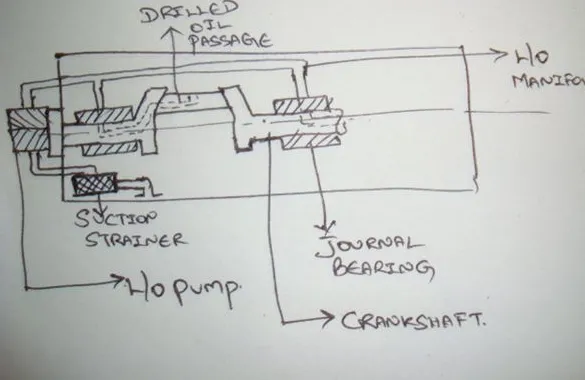 DRILLED
OIL
PASSAGE
L/O
MANIFO
SUCTION
STRAINER
JOURNAL
BEARING
L/O PUMP.
CRANKSHAFT.